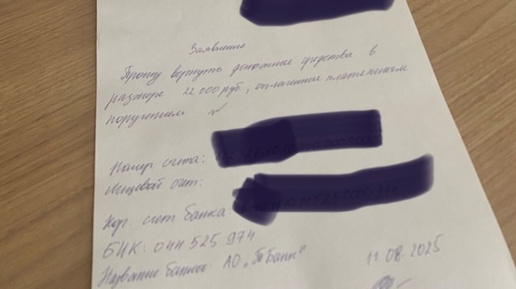 Заявление
Прошу вернуть денежные средства в
размере 22 000 руб, оплаченные платежным
поручением
Номер счета:
Лицевой счет:
Кор. счет банка
БИК: 044 525 974
Название банка: АО „ТБанк"
11.08.2025